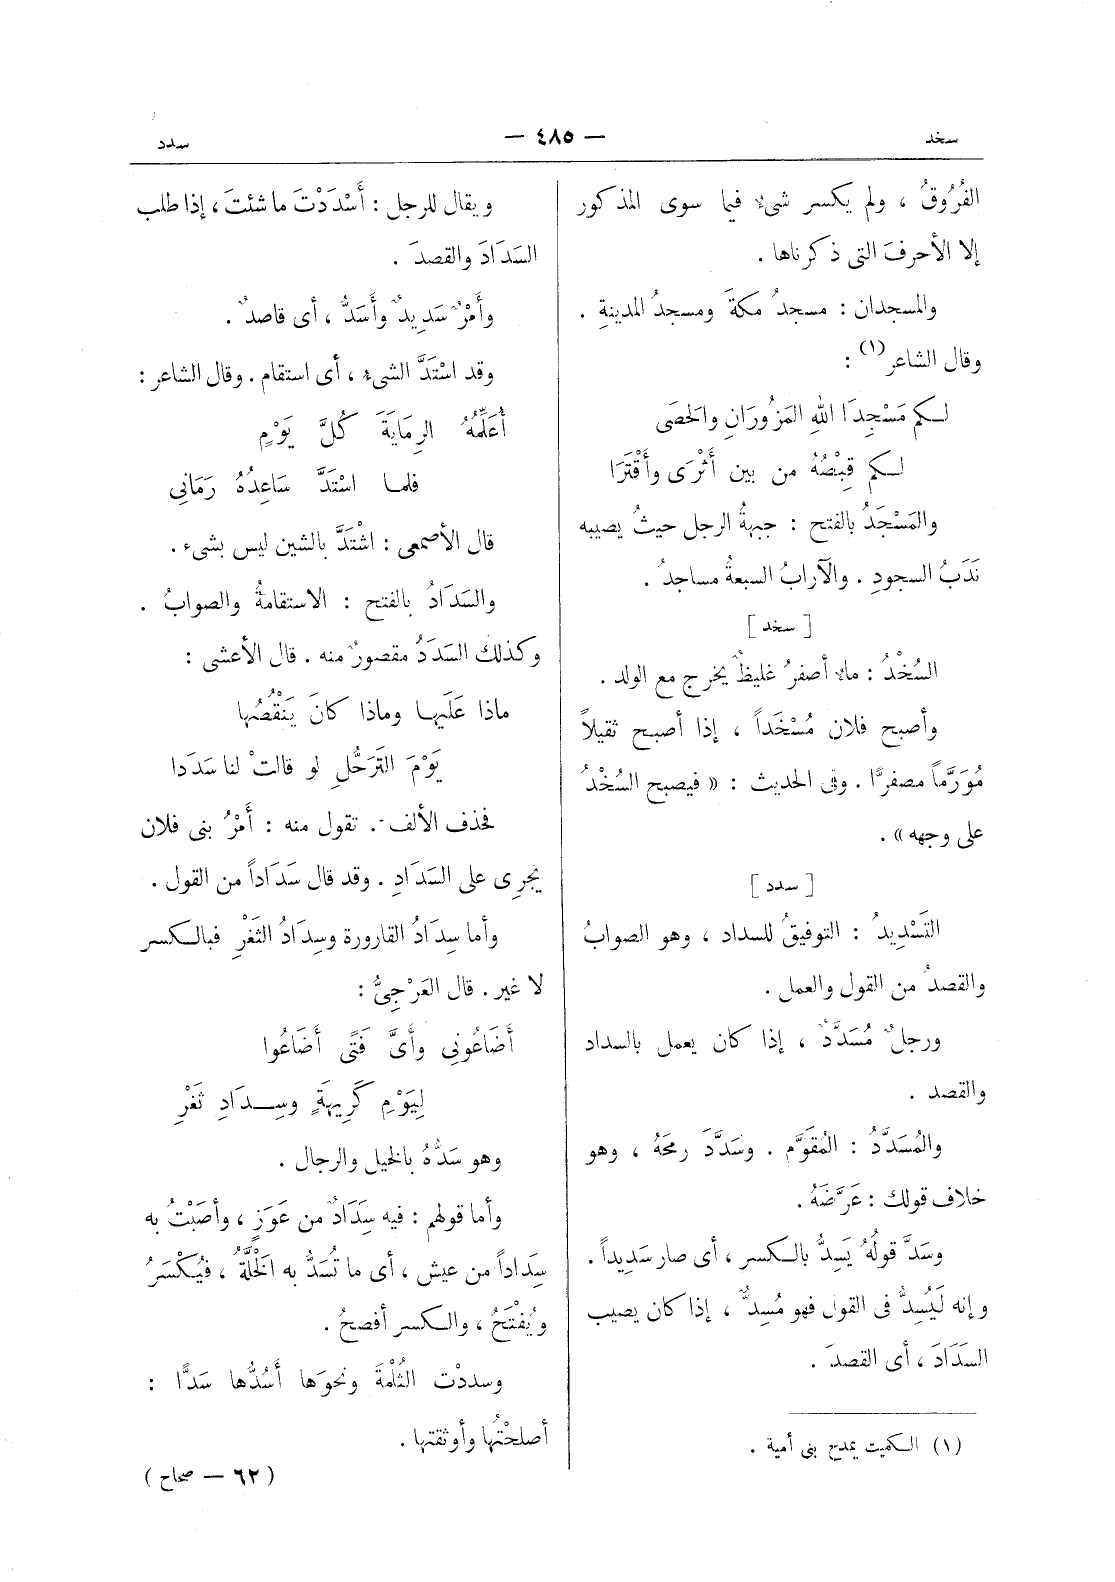 سخد
— ٤٨٥ —
سدد
الفُرُوقُ ، ولم يكسر شىء فيما سوى المذكور
إلا الأحرفَ التى ذكرناها .
والمسجدان : مسجدُ مكةَ ومسجدُ المدينةِ .
وقال الشاعر(١) :
لكم مَسْجِدَا اللهِ المَزُورَانِ والحَصَى
لكم قِبْصُهُ من بين أَثْرَى وأَقْتَرَا
والمَسْجَدُ بالفتح : جبهةُ الرجل حيثُ يصيبه
نَدَبُ السجودِ . والآرابُ السبعةُ مساجدُ .
[ سخد ]
السُخْدُ : ماء أصفرُ غليظٌ يخرج مع الولد .
وأصبح فلان مُسْخَداً ، إذا أصبح ثقيلاً
مُوَرَّماً مصفرًّا . وفى الحديث : « فيصبح السُخْدُ
على وجهه » .
[ سدد ]
التَسْدِيدُ : التوفيقُ للسداد ، وهو الصوابُ
والقصدُ من القول والعمل .
ورجلٌ مُسَدَّدٌ ، إذا كان يعمل بالسداد
والقصد .
والمُسَدَّدُ : المُقَوَّم . وسَدَّدَ رمحَهُ ، وهو
خلاف قولك : عَرَّضَهُ .
وسَدَّ قولُهُ يَسِدُّ بالكسر ، أى صار سَدِيداً .
وإنه لَيُسِدُّ فى القول فهو مُسِدٌّ ، إذا كان يصيب
السَدَادَ ، أى القصدَ .
(١) الكميت يمدح بنى أمية .
ويقال للرجل : أَسْدَدْتَ ما شئتَ ، إذا طلب
السَدَادَ والقصدَ .
وأَمْرٌ سَدِيدٌ وأَسَدُّ ، أى قاصدٌ .
وقد اسْتَدَّ الشىء ، أى استقام . وقال الشاعر :
أُعَلِّمُهُ الرِمَايَةَ كُلَّ يَوْمٍ
فلما اسْتَدَّ سَاعِدُهُ رَمَانِى
قال الأصمعى : اشْتَدَّ بالشين ليس بشىء .
والسَدَادُ بالفتح : الاستقامةُ والصوابُ .
وكذلك السَدَدُ مقصورٌ منه . قال الأعشى :
ماذا عَلَيها وماذا كانَ يَنْقُصُها
يَوْمَ التَرَحُّلِ لو قالتْ لنا سَدَدا
فحذف الألف . تقول منه : أَمْرُ بنى فلان
يجرِى على السَدَادِ . وقد قال سَدَاداً من القول .
وأما سِدَادُ القارورة وسِدَادُ الثَغْرِ فبالكسر
لا غير . قال العَرْجِىُّ :
أَضَاعُونِى وأَىَّ فَتًى أَضَاعُوا
لِيَوْمِ كَرِيهَةٍ وسِدَادِ ثَغْرِ
وهو سَدُّهُ بالخيل والرجال .
وأما قولهم : فيه سِدَادٌ من عَوَزٍ ، وأصَبْتُ به
سِدَاداً من عيش ، أى ما تُسَدُّ به الخَلَّةُ ، فيُكْسَرُ
ويُفْتَحُ ، والكسر أفصحُ .
وسددْت الثُلْمَةَ ونحوَها أَسُدُّها سَدًّا :
أصلحْتُها وأوثقتها .
( ٦٢ — صحاح )